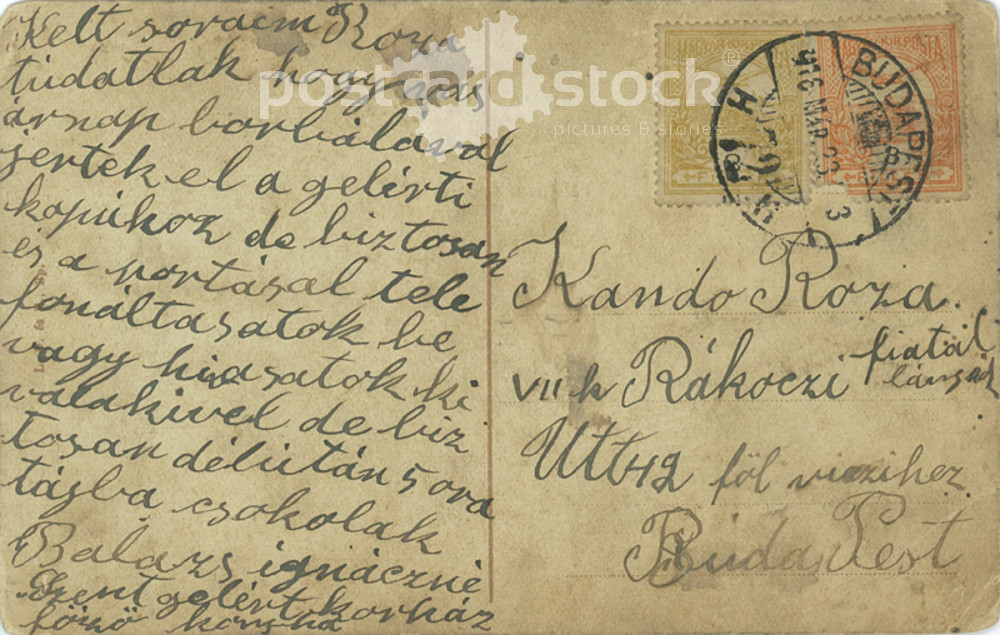 Kelt soraim Roza
tudatlak hogy vas
árnap borbálával
jertek el a gelérti
kapuhoz de biztosan
és a portásal tele
fonáltasatok be
vagy hivasatok ki
valakivel de biz
tosan délután 5 ora
tágba csokolak
Balazs ignáczné
Szent gelért korház
főző konyha
postcard stock
®
pictures & stories
MAGYAR KIR. POSTA
BUDAPEST
916 MÁR. 23
Kando Roza.
VII k Rákoczi fiatal
Utt 42 föl
Buda Pest